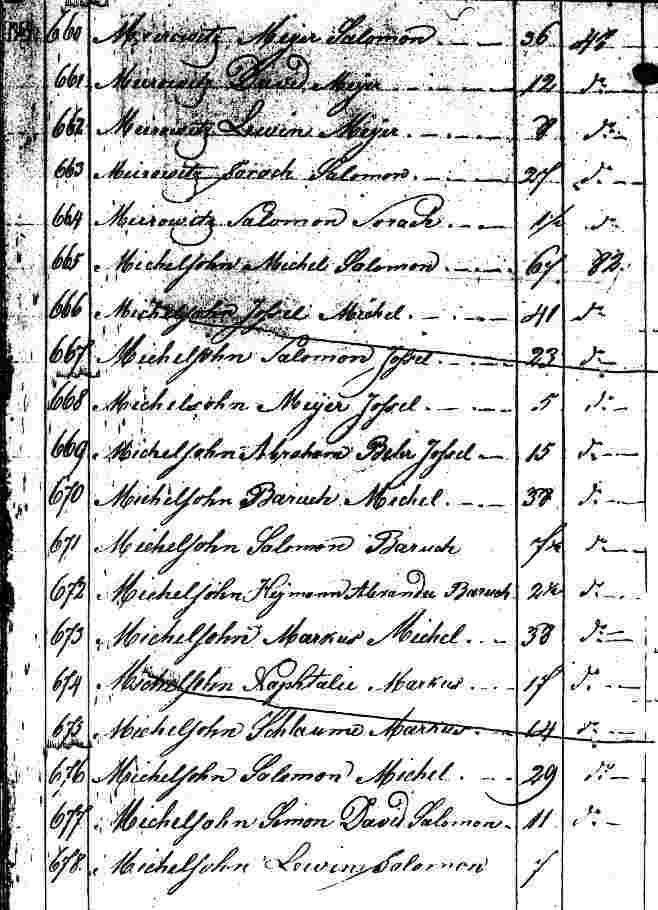 660 Meirowitz Meyer Salomon 36
661 Meirowitz David Meyer 12 do
662 Meirowitz Lewin Meyer 8 do
663 Meirowitz Sorach Salomon 27 do
664 Meirowitz Salomon Sorach 1½ do
665 Michelsohn Michel Salomon 67 82
666 Michelsohn Jossel Michel 41 do
667 Michelsohn Salomon Jossel 23 do
668 Michelsohn Meyer Jossel 5 do
669 Michelsohn Abraham Behr Jossel 15 do
670 Michelsohn Baruch Michel 38 do
671 Michelsohn Salomon Baruch do
672 Michelsohn Heymann Alexander Baruch 2½ do
673 Michelsohn Markus Michel 38 do
674 Michelsohn Naphtalie Markus 17 do
675 Michelsohn Schlaume Markus 14 do
676 Michelsohn Salomon Michel 29 do
677 Michelsohn Simon David Salomon 11 do
678 Michelsohn Lewin Salomon 7